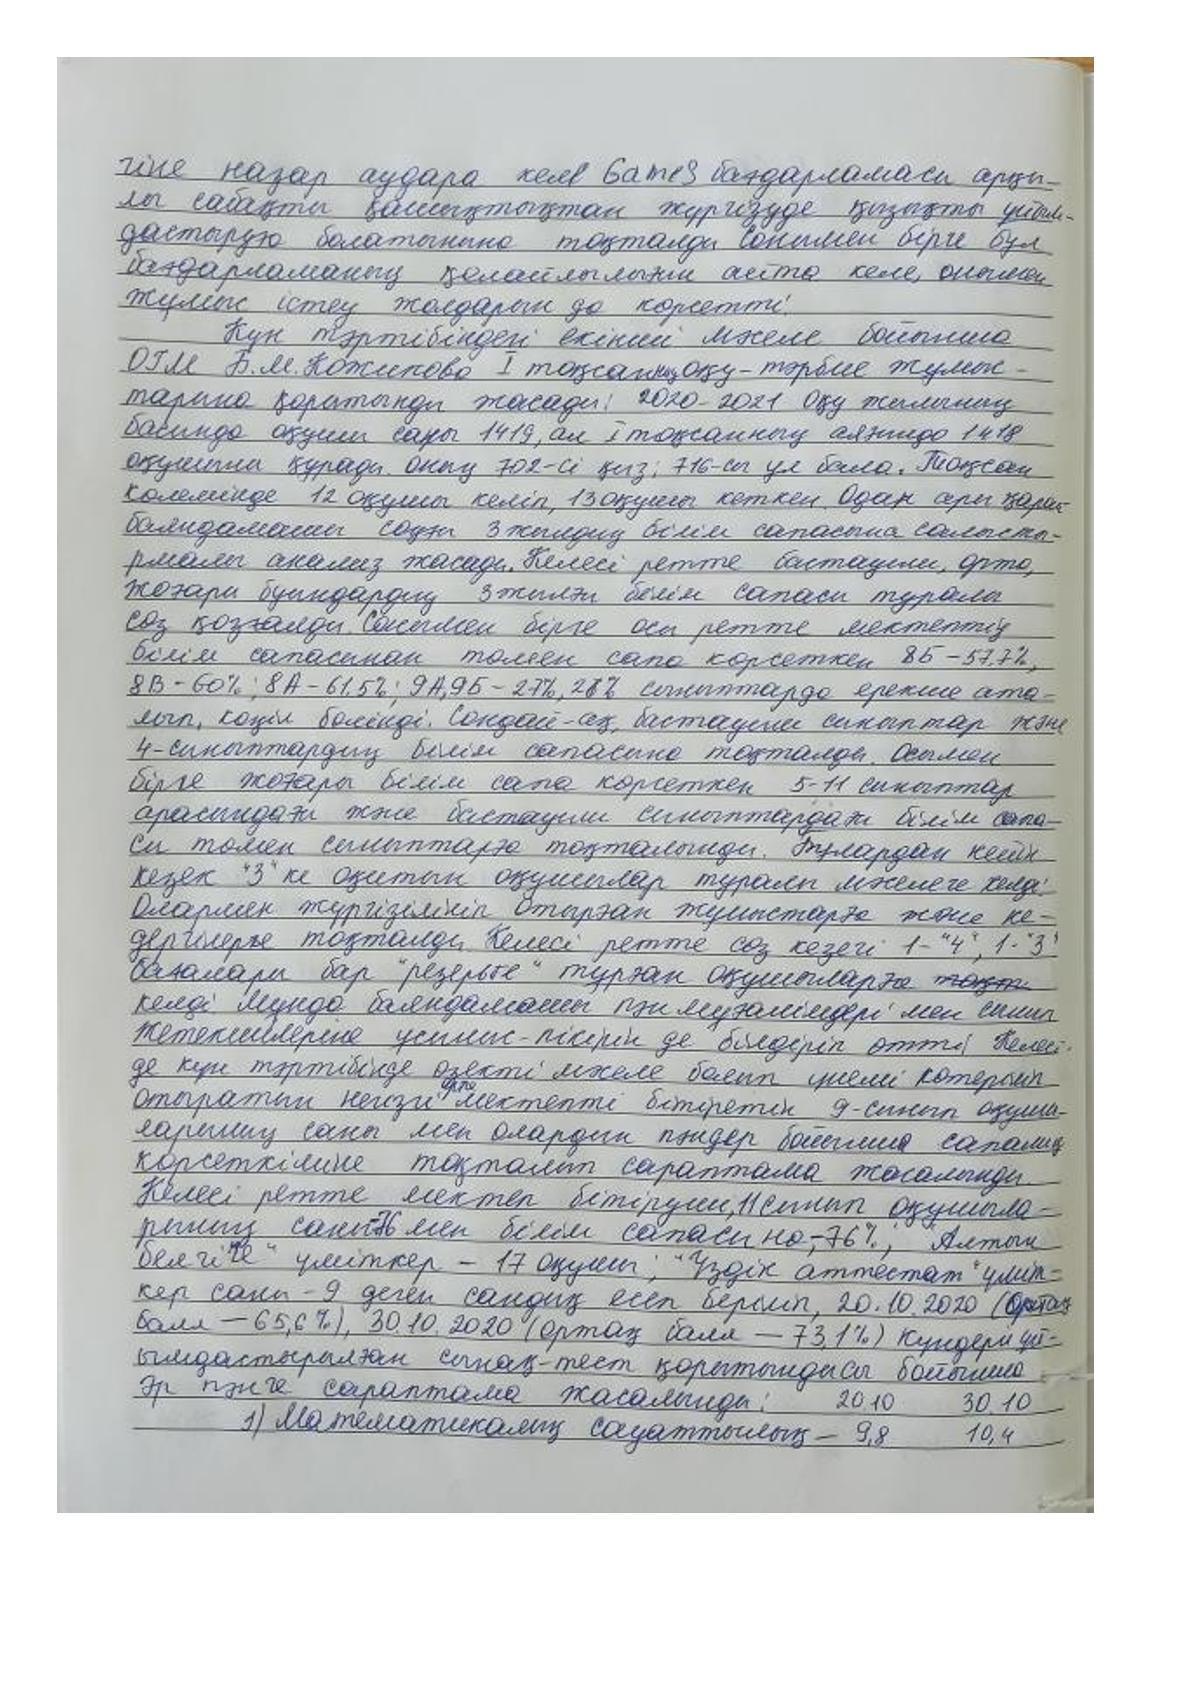 гіне назар аудара келе Games бағдарламасы арқы-
лы сабақты қашықтықтан жүргізуде қызықты ұйым-
дастыруға болатынына тоқталды. Сонымен бірге бұл
бағдарламаның қолайлылығын айта келе, онымен
жұмыс істеу жолдарын да көрсетті.
Күн тәртібіндегі екінші мәселе бойынша
ОІМ Б.М. I тоқсанның оқу-тәрбие жұмыс-
тарына қорытынды жасады: 2020-2021 оқу жылының
басында оқушы саны 1419, ал I тоқсанның аяғында 1418
оқушыны құрады. Оның 702-сі қыз; 716-сы ұл бала. Тоқсан
көлемінде 12 оқушы келіп, 13 оқушы кеткен. Одан әрі қарай
баяндамашы соңғы 3 жылдың білім сапасына салысты-
рмалы анализ жасады. Келесі ретте бастауыш, орта,
жоғары буындардың 3 жылғы білім сапасы туралы
сөз қозғалды. Сонымен бірге осы ретте мектептің
білім сапасынан төмен сапа көрсеткен 8Б-57,7%,
8В-60%; 8А-61.5%; 9А,9Б-27%,28% сыныптарда ерекше ата-
лып, көңіл бөлінді. Сондай-ақ, бастауыш сыныптар және
4-сыныптардың білім сапасына тоқталды. Осымен
бірге жоғары білім сапа көрсеткен 5-11 сыныптар
арасындағы және бастауыш сыныптардағы білім сапа-
сы төмен сыныптарға тоқталынды. Бұлардан кейін
кезек "3"ке оқитын оқушылар туралы мәселеге келді.
Олармен жүргізілініп отырған жұмыстарға және ке-
дергілерге тоқталды. Келесі ретте сөз кезегі 1-"4", 1-"3"
бағалары бар "резервте" тұрған оқушыларға
келді. Мұнда баяндамашы пән мұғалімдері мен сынып
жетекшілеріне ұсыныс-пікірін де білдіріп өтті. Келесі-
де күн тәртібінде өзекті мәселе болып үнемі көтеріліп
отыратын негізгі орта мектепті бітіретін 9-сынып оқушы-
ларының саны мен олардың пәндер бойынша сапалық
көрсеткішіне тоқталып сараптама жасалынды.
Келесі ретте мектеп бітіруші, 11 сынып оқушыла-
рының саны-76 мен білім сапасына-,76%, "Алтын
белгіге" үміткер - 17 оқушы; "Үздік аттестат" үміт-
кер саны-9 деген сандық есеп беріліп, 20.10.2020 (орташа
балл - 65,6%), 30.10.2020 (орташа балл - 73,1%) күндері ұй-
ымдастырылған сынақ-тест қорытындысы бойынша
әр пәнге сараптама жасалынды: 20.10 30.10
1) Математикалық сауаттылық - 9,8 10,4